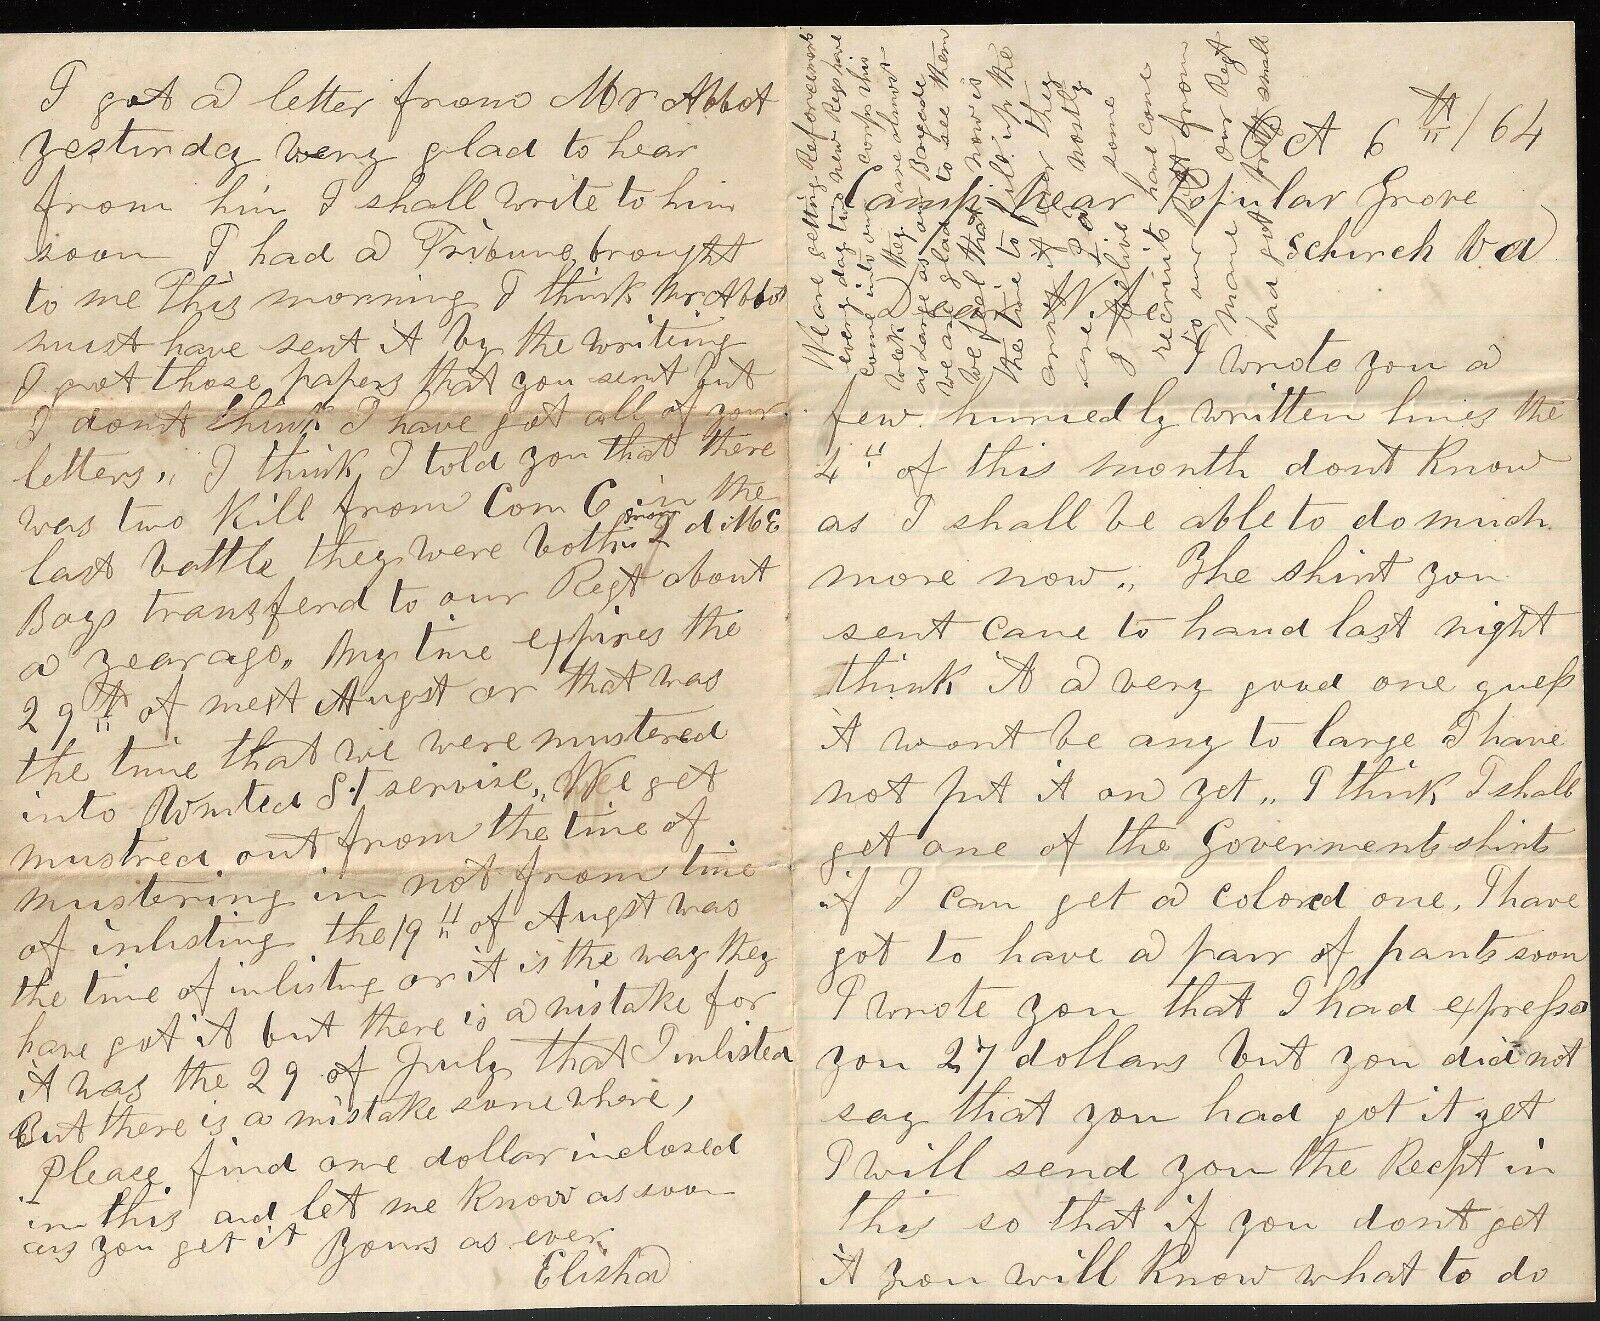 Oct 6th /64
Camp near Popular Grove
Church Va
Dear Wife
I wrote you a
few hurriedly written lines the
4" of this month dont know
as I shall be able to do much
more now,, The shirt you
sent came to hand last night
think it a very good one guess
it wont be any to large I have
not put it on yet,, I think I shall
get one of the Goverments shirts
if I can get a colored one, I have
got to have a parr of pants soon
I wrote you that I had expressd
you 27 dollars but you did not
say that you had got it yet
I will send you the Recpt in
this so that if you dont get
it you will know what to do
I got a letter from Mr Abbot
yesturday very glad to hear
from him I shall write to him
soon I had a Tribune brought
to me This morning I think Mr Abbot
must have sent it by the writing
I got those papers that you sent but
I dont think I have got all of your
letters,, I think I told you that there
was two Kill from Com C in the
last battle they were both from 2d Me
Boys transferd to our Regt about
a year ago,, My time expires the
29th of next Augst or that was
the time that we were mustered
into United St servise,, We get
mustred out from the time of
mustering in not from time
of inlisting the 19" of Augst was
the time of inlisting or it is the way they
have got it but there is a mistake for
it was the 29 of July that I inlisted
But there is a mistake somewhere,
Please find one dollar inclosed
in this and let me know as soon
as you get it Yours as ever
Elisha
We are getting Reforcements
every day two new Regs have
come into our corps this
week they are almost
as large as our Bargade
we are glad to see them
we feel that now is
the time to fill up the
army
are Pa mostly
I belive some
recruits have come
to our Regt from
Maine our Regt
had got pretty small